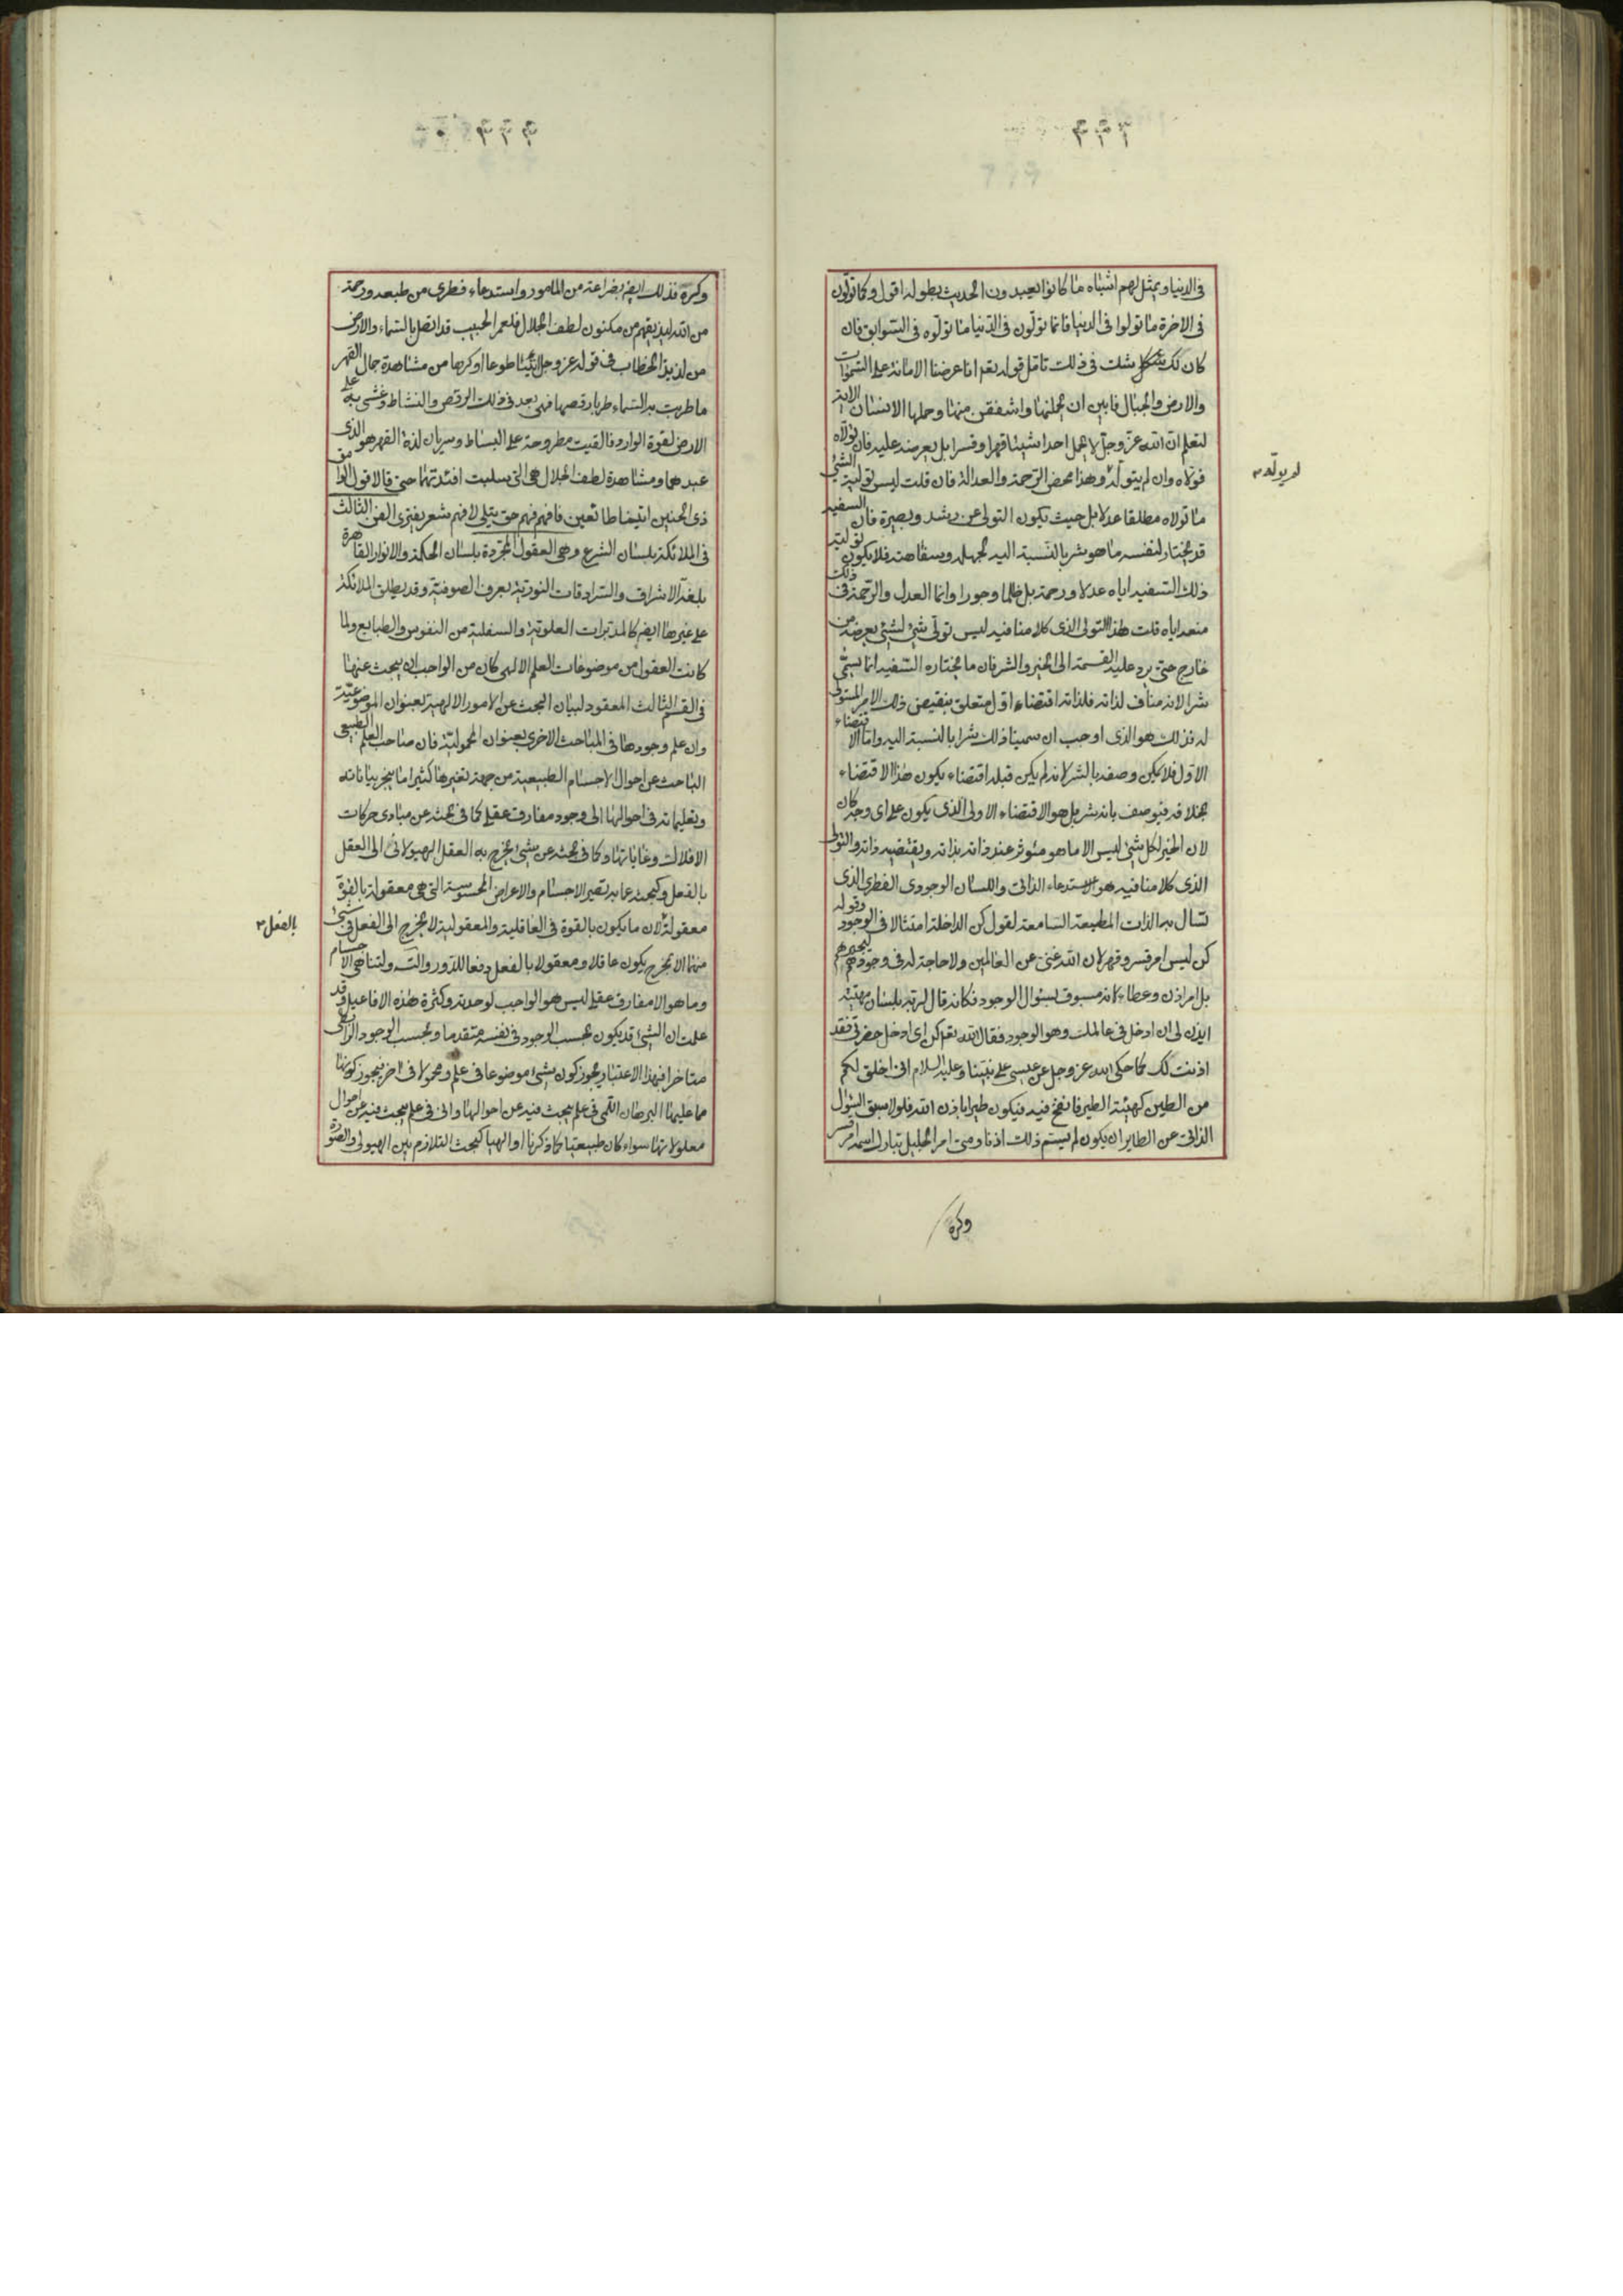 في الدنيا ويمثل لهم اشباه ما كانوا يعبدون الحديث بطوله اقول وكما تولون
في الاخرة ما تولوا في الدنيا فانما تولون في الدنيا ما تولوه في السوابق فان
كان لك شك في ذلك تامل قوله تعم انا عرضنا الامانة على السموات
والارض والجبال فابين ان يحملنها واشفقن منها وحملها الانسان الاية
لتعلم ان الله عز وجل لا يحمل احدا شيئا قهرا وقسرا بل يعرضه عليه فان تولاه
فولاه وان لم يتوله وهذا محض الرحمة والعدالة فان قلت ليس تولية الشئ
ما تولاه مطلقا عدلا بل حيث يكون التولى عن رشد وبصيرة فان السفيه
قد يختار لنفسه ما هو شر بالنسبة اليه لجهله وسفاهته فلا يكون تولية
ذلك السفيه اياه عدلا ورحمة بل ظلما وجورا وانما العدل والرحمة في ذلك
منعه اياه قلت هذا التولى الذى كلامنا فيه ليس تولى شئ لشئ بعرضه من
خارج حتى يرد عليه القسمة الى الخير والشر فان ما يختاره السفيه انما يسمى
شرا لانه مناف لذاته فلذاته اقتضاء اول متعلق بنقيض ذلك الامر المتولى
له فذلك هو الذى اوجب ان سمينا ذلك شرا بالنسبة اليه واما الاقتضاء
الاول فلا يمكن وصفه بالشر لانه لم يكن قبله اقتضاء يكون هذا الاقتضاء
بخلافه فيوصف بانه شر بل هو الاقتضاء الاولى الذى يكون على اى وجه كان
لان الخير لكل شئ ليس الا ما هو مئوثر عند ذاته بذاته ويقتضيه ذاته والتولى
الذى كلامنا فيه هو الاستدعاء الذاتى واللسان الوجودى الفطرى الذى
تسال به الذات المطيعة السامعة لقول كن الداخلة امتثالا في الوجود وقوله
كن ليس امر قسر وقهر لان الله غنى عن العالمين ولا حاجة له في وجودهم
بل امر اذن وعطاء لانه مسبوق بسئوال الوجود فكانه قال لربه بلسان مهيته
ايذن لى ان ادخل في عالمك وهو الوجود فقال الله تعم كن اى ادخل حضرتى فقد
اذنت لك كما حكى الله عز وجل عن عيسى على نبينا وعليه السلام انى اخلق لكم
من الطين كهيئة الطير فانفخ فيه فيكون طيرا باذن الله فلولا سبق السئول
الذاتى عن الطاير ان يكون لم يستم ذلك اذنا ومتى امر الجليل تبارك اسمه امر قسر
وكره
وكره فذلك ايض بضراعة من المامور واستدعاء فطرى من طبعه ورحمة
من الله ليذيقهم من مكنون لطف الجلال فلعمر الحبيب قد اتصل بالسماء والارض
من لذيذ الخطاب في قوله عز وجل ائتيا طوعا او كرها من مشاهدة جمال القهر
ما طربت به السماء طربا رقصها فهى بعد في ذلك الرقص والنشاط وغشى به على
الارض لقوة الوارد فالقيت مطروحة على البساط وسريان لذة القهر هو الذى
عبدهما ومشاهدة لطف الجلال هى التى سلبت افئدتهما حتى قالا قول الوامق
ذى الحنين اتينا طائعين فافهم فهم حق يتلى لا فهم شعر يفترى الفن الثالث
في الملائكة بلسان الشرع وهى العقول المجردة بلسان الحكمة والانوار القاهرة
بلغة الاشراف والسرادقات النورية بعرف الصوفية وقد يطلق الملائكة
على غيرها ايض كالمدبرات العلوية والسفلية من النفوس والطبايع ولما
كانت العقول من موضوعات العلم الالهى كان من الواجب ان يبحث عنها
في القسم الثالث المعقود لبيان البحث عن الامور الالهية بعنوان الموضوعية
وان علم وجودها في المباحث الاخرى بعنوان المحمولية فان صاحب العلم الطبيعى
الباحث عن احوال الاجسام الطبيعية من جهة تغيرها كثيرا ما ينجر بياناته
وتعليماته في احوالها الى وجود مفارق عقلى كما في بحثه عن مبادى حركات
الافلاك وغاياتها وكما في بحثه عن شئ يخرج به العقل الهيولانى الى العقل
بالفعل وكبحثه عما به تصير الاجسام والاعراض المحسوسة التى هى معقولة بالقوة
معقولة لان ما يكون بالقوة في العاقلية والمعقولية لا يخرج الى الفعل في شئ
بالفعل
منهما الا بمخرج يكون عاقلا ومعقولا بالفعل دفعا للدور والتس ولتناهى الاجسام
وما هو الا مفارق عقلى ليس هو الواجب لوحدته وكثرة هذه الافاعيل وقد
علمت ان الشئ قد يكون بحسب الوجود في نفسه متقدما وبحسب الوجود الرابطى
متاخرا فبهذا الاعتبار يجوز كون شئ موضوعا في علم ومحمولا في اخر فيجوز كونها
مما عليها البرهان اللمى في علم يبحث فيه عن احوالها وانى في علم يبحث فيه عن احوال
معلولاتها سواء كان طبيعيا كما ذكرنا او الهيا كبحث التلازم بين الهيولى والصورة